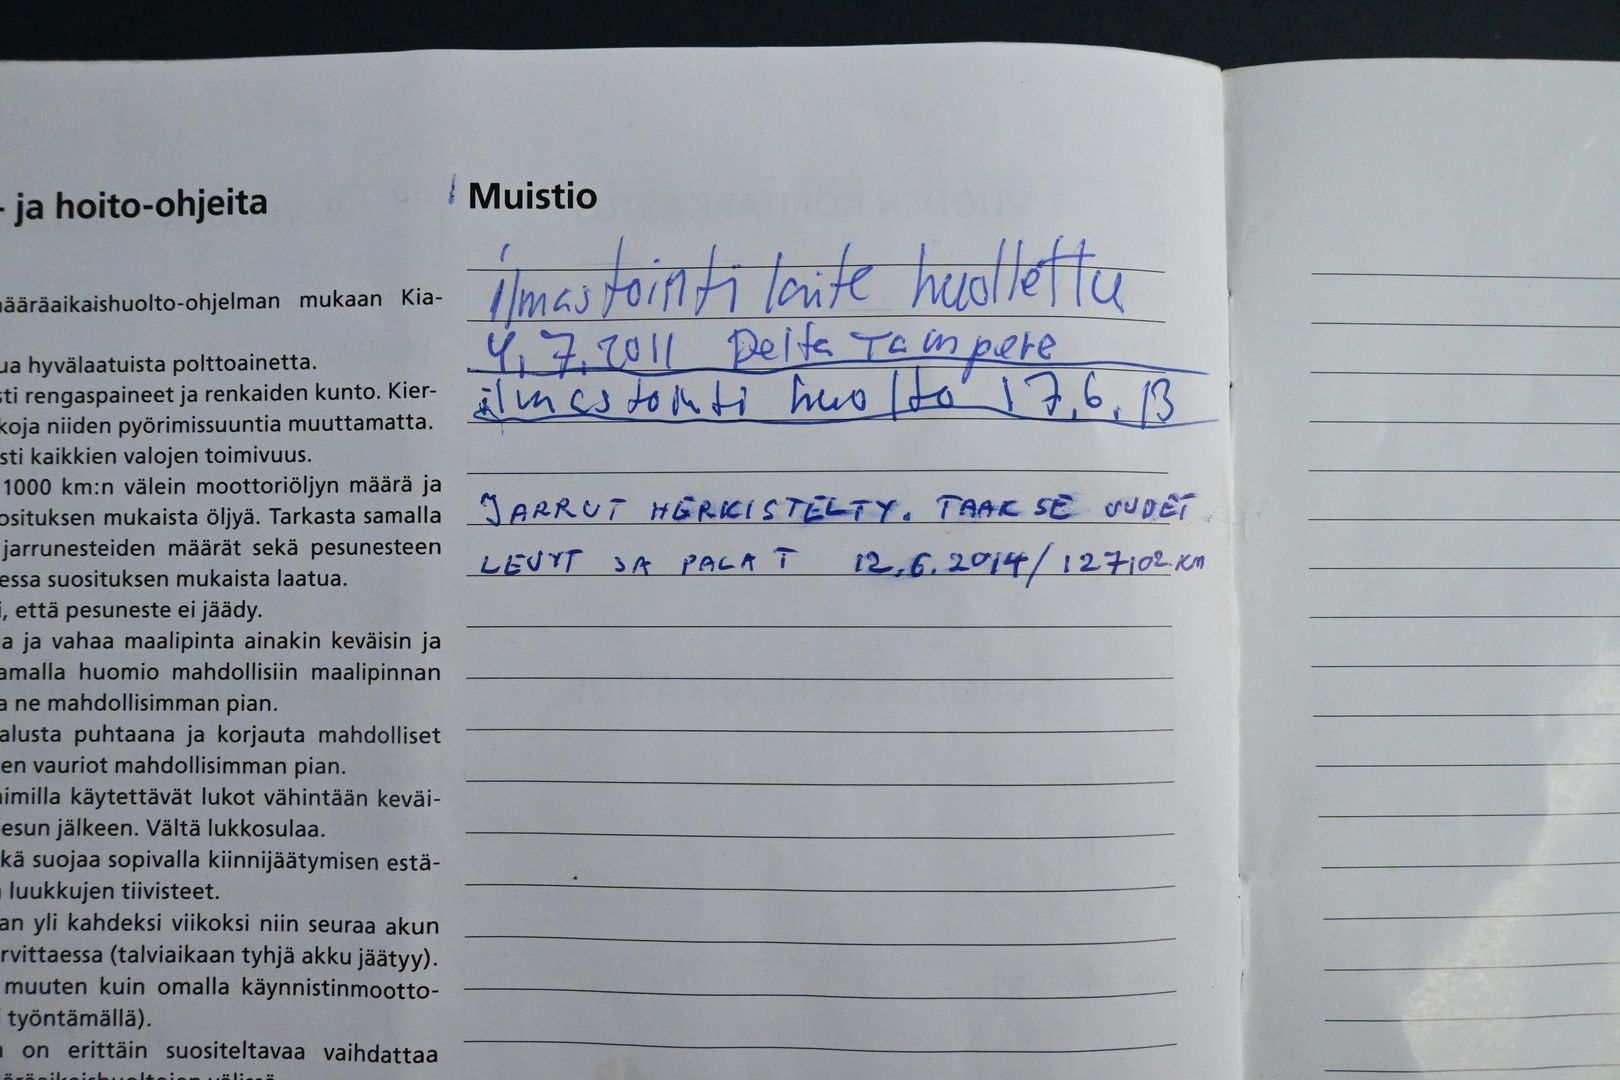 - ja hoito-ohjeita
määräaikaishuolto-ohjelman mukaan Kia-
ua hyvälaatuista polttoainetta.
sti rengaspaineet ja renkaiden kunto. Kier-
koja niiden pyörimissuuntia muuttamatta.
sti kaikkien valojen toimivuus.
1000 km:n välein moottoriöljyn määrä ja
osituksen mukaista öljyä. Tarkasta samalla
jarrunesteiden määrät sekä pesunesteen
essa suosituksen mukaista laatua.
i, että pesuneste ei jäädy.
a ja vahaa maalipinta ainakin keväisin ja
amalla huomio mahdollisiin maalipinnan
a ne mahdollisimman pian.
alusta puhtaana ja korjauta mahdolliset
en vauriot mahdollisimman pian.
imilla käytettävät lukot vähintään keväi-
esun jälkeen. Vältä lukkosulaa.
kä suojaa sopivalla kiinnijäätymisen estä-
luukkujen tiivisteet.
an yli kahdeksi viikoksi niin seuraa akun
rvittaessa (talviaikaan tyhjä akku jäätyy).
muuten kuin omalla käynnistinmootto-
työntämällä).
on erittäin suositeltavaa vaihdattaa
Muistio
ilmastointi laite huollettu
4.7.2011 Delta Tampere
ilmastointi huolto 17.6.13
JARRUT HERKISTELTY. TAAKSE UUDET
LEVYT JA PALAT 12.6.2014/127102 KM